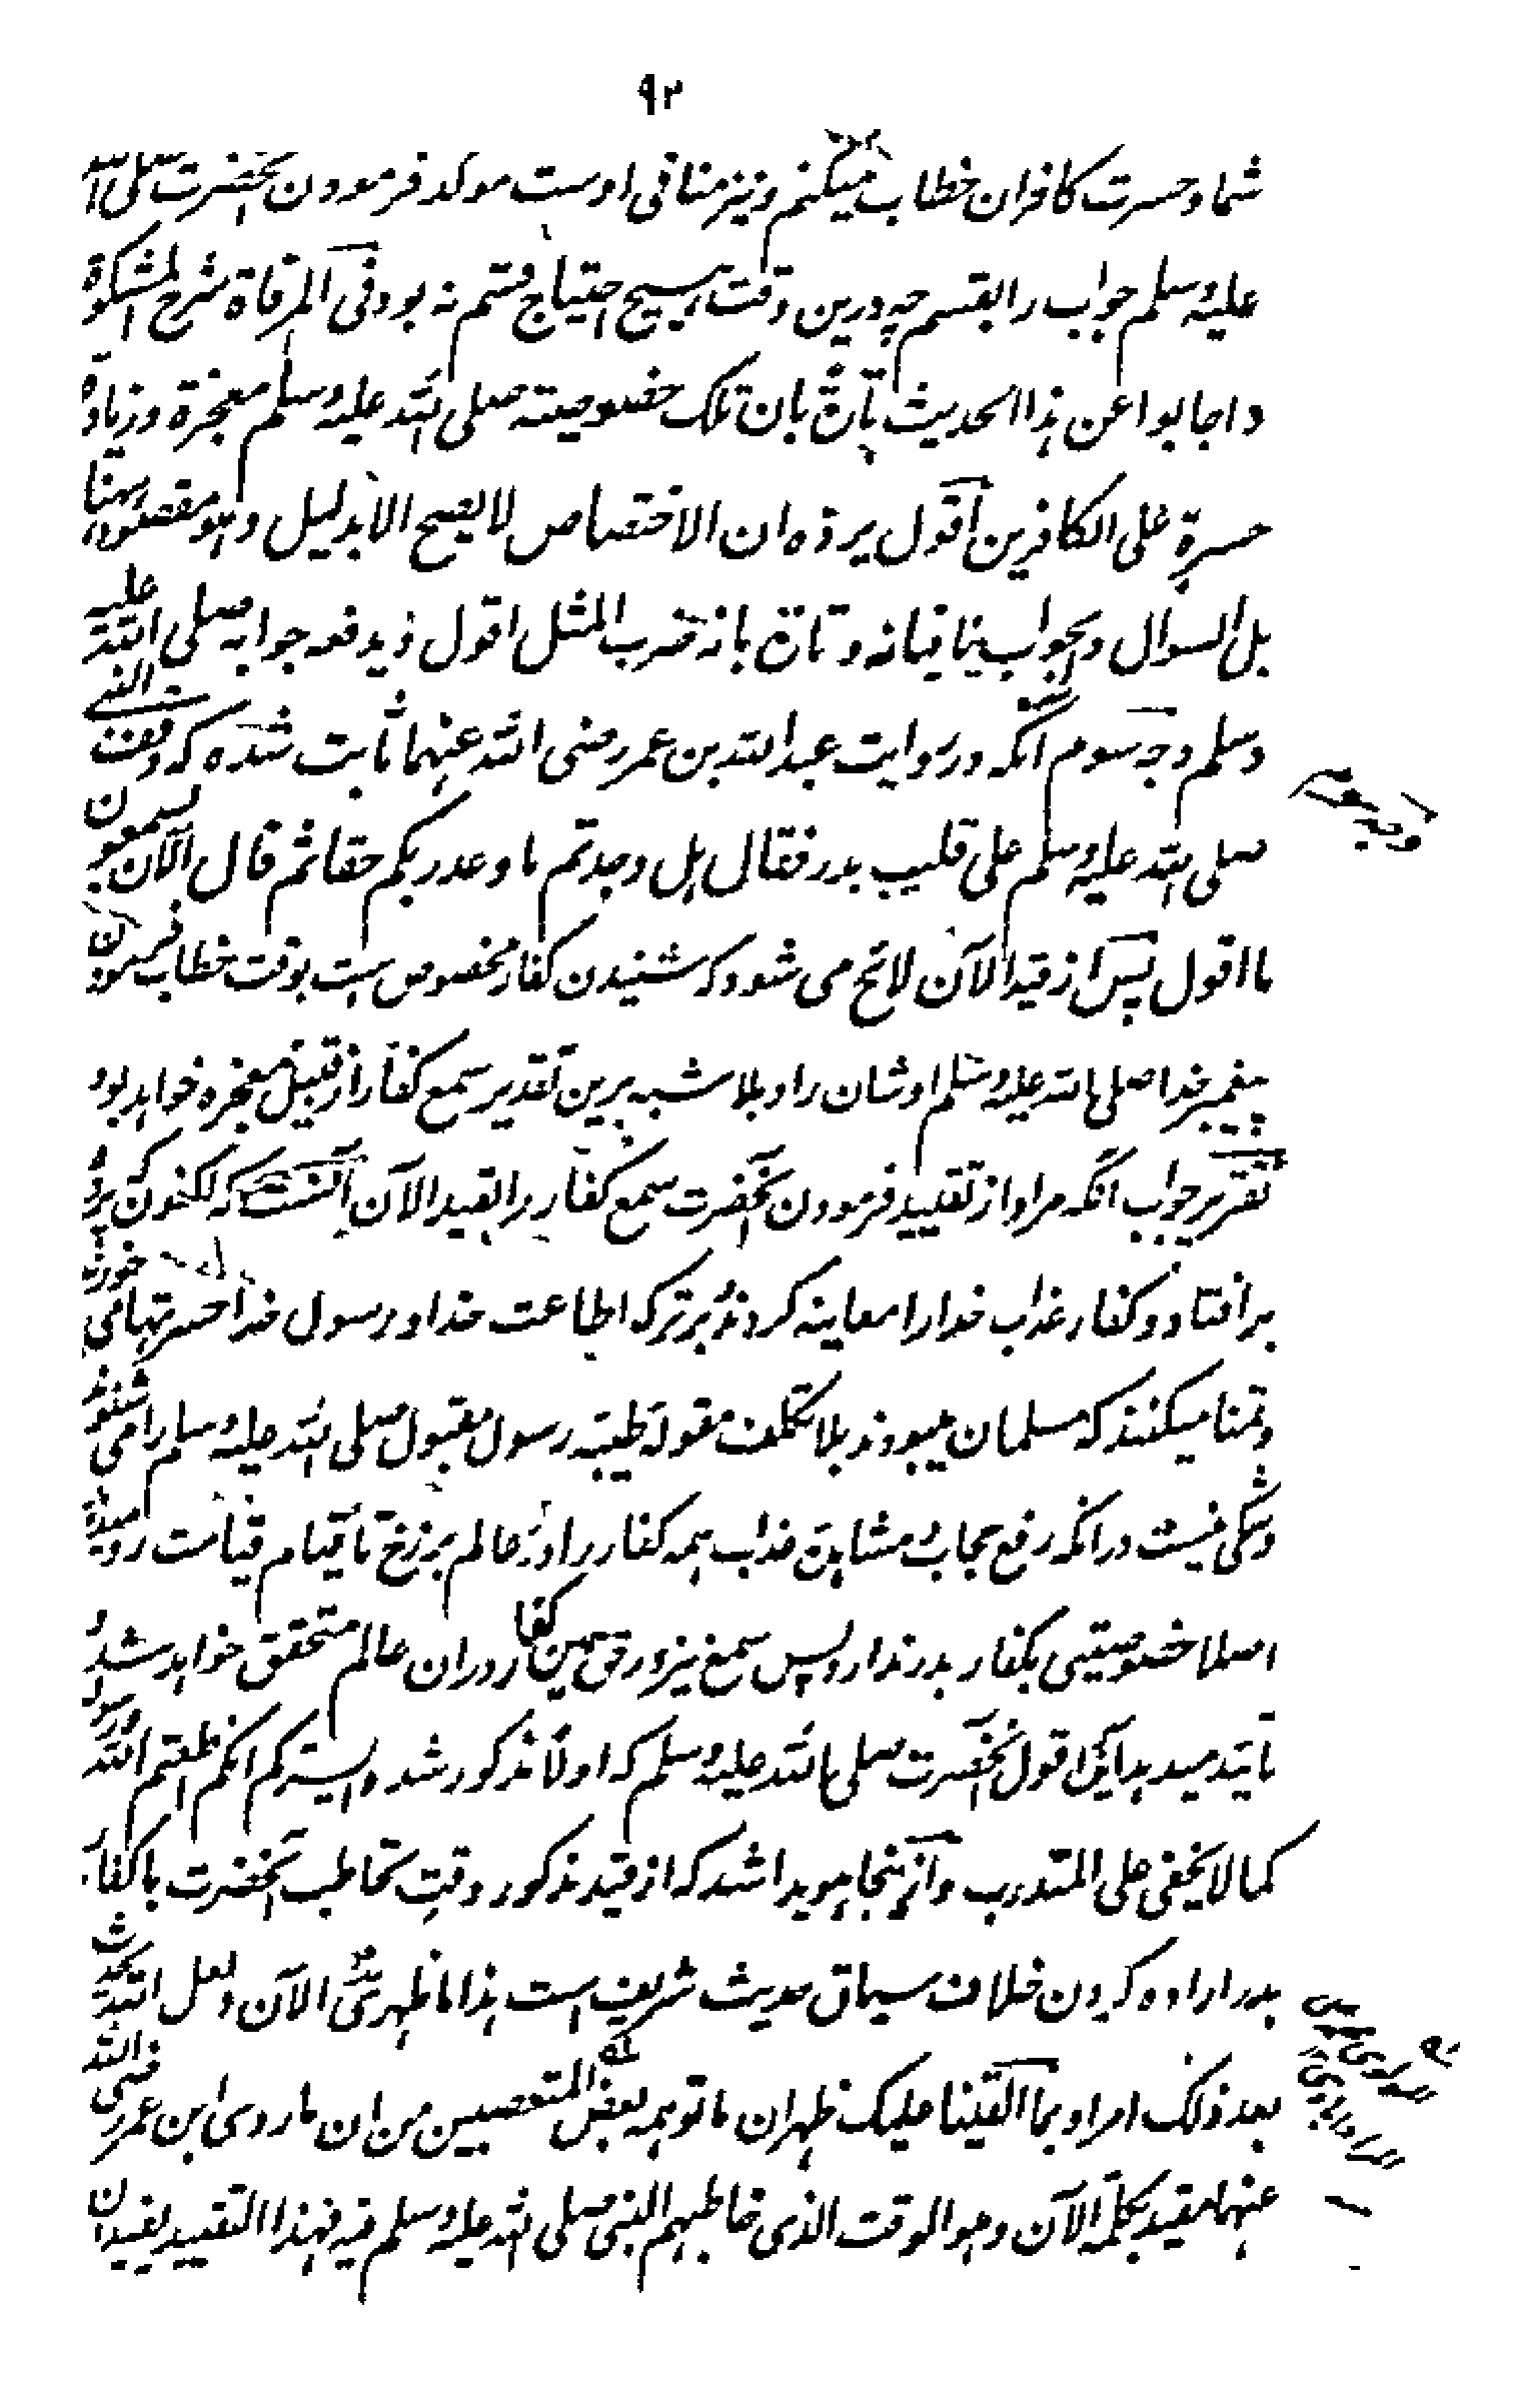 ۹۲
شما و حسرت کافران خطاب میکنم و نیز منافی اوست موکد فرمودن آنحضرت صلی الله
علیه وسلم جواب را بقسم چه درین وقت هیچ احتیاج قسم نه بود فی المرقاة شرح المشکوة
واجابوا عن هذا الحدیث تارة بان تلک خصوصیته صلی الله علیه وسلم معجزة وزیادة
حسرة علی الکافرین اقول یرده ان الاختصاص لا یصح الا بدلیل وهو مفقود ههنا
بل السوال والجواب ینافیانه وتارة بانه ضرب المثل اقول ویدفعه جوابه صلی الله علیه
وسلم وجه سوم آنکه در روایت عبد الله بن عمر رضی الله عنهما ثابت شده که وقف النبی
صلی الله علیه وسلم علی قلیب بدر فقال هل وجدتم ما وعد ربکم حقا ثم قال الآن یسمعون
ما اقول پس از قید الآن لائح می شود که شنیدن کفار مخصوص است بوقت خطاب فرمودن
پیغمبر خدا صلی الله علیه وسلم اوشان را و بلا شبه برین تقدیر سمع کفار از قبیل معجزه خواهد بود
تقریر جواب آنکه مراد از تقیید فرمودن آنحضرت سمع کفار را بقید الآن آنست که اکنون که پرده
بر افتاد و کفار عذاب خدا را معاینه کردند بر ترک اطاعت خدا و رسول خدا حسرتها می خورند
و تمنا میکنند که مسلمان میبودند بلا تکلف مقوله طیبه رسول مقبول صلی الله علیه وسلم را می شنوند
و شکی نیست در آنکه رفع حجاب و مشاهده عذاب همه کفار را در عالم برزخ تا قیام قیامت رو میدهد
اصلا خصوصیتی بکفار بدر ندارد پس سمع نیز در حق همین کفار در آن عالم متحقق خواهد شد و
تائید میدهد این را قول آنحضرت صلی الله علیه وسلم که اولا مذکور شد ایسرکم انکم اطعتم الله ورسوله
کما لا یخفی علی المتدرب و از ینجا هویدا شد که از قید مذکور وقت تخاطب آنحضرت با کفار
بدر اراده کردن خلاف سیاق حدیث شریف است هذا ما ظهر لی الآن ولعل الله یحدث
بعد ذلک امرا وبما القینا علیک ظهر ان ما توهمه بعض المتعصبین من ان ما روی ابن عمر رضی الله
عنهما مقید بکلمة الآن وهو الوقت الذی خاطبهم النبی صلی الله علیه وسلم فیه فهذا التقیید یفید ان
وجه سوم